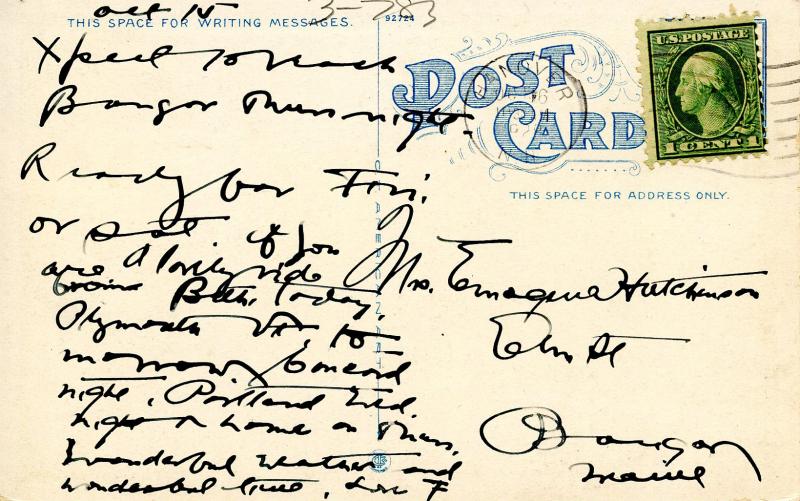 Oct 15
3-783
THIS SPACE FOR WRITING MESSAGES.
92724
Xpect to reach
Bangor Thurs night.
Ready for Fri.
or Sat if you
are A lovely ride
Beth. Today.
Plymouth Vt. to
morrow Concord
night, Portland Wed
night & home on Thurs.
Wonderful weather and
wonderful time, Love F
POST
CARD
THIS SPACE FOR ADDRESS ONLY.
U.S. POSTAGE
1 CENT 1
Mrs. Emogene Hutchinson
Elm St
Bangor
Maine